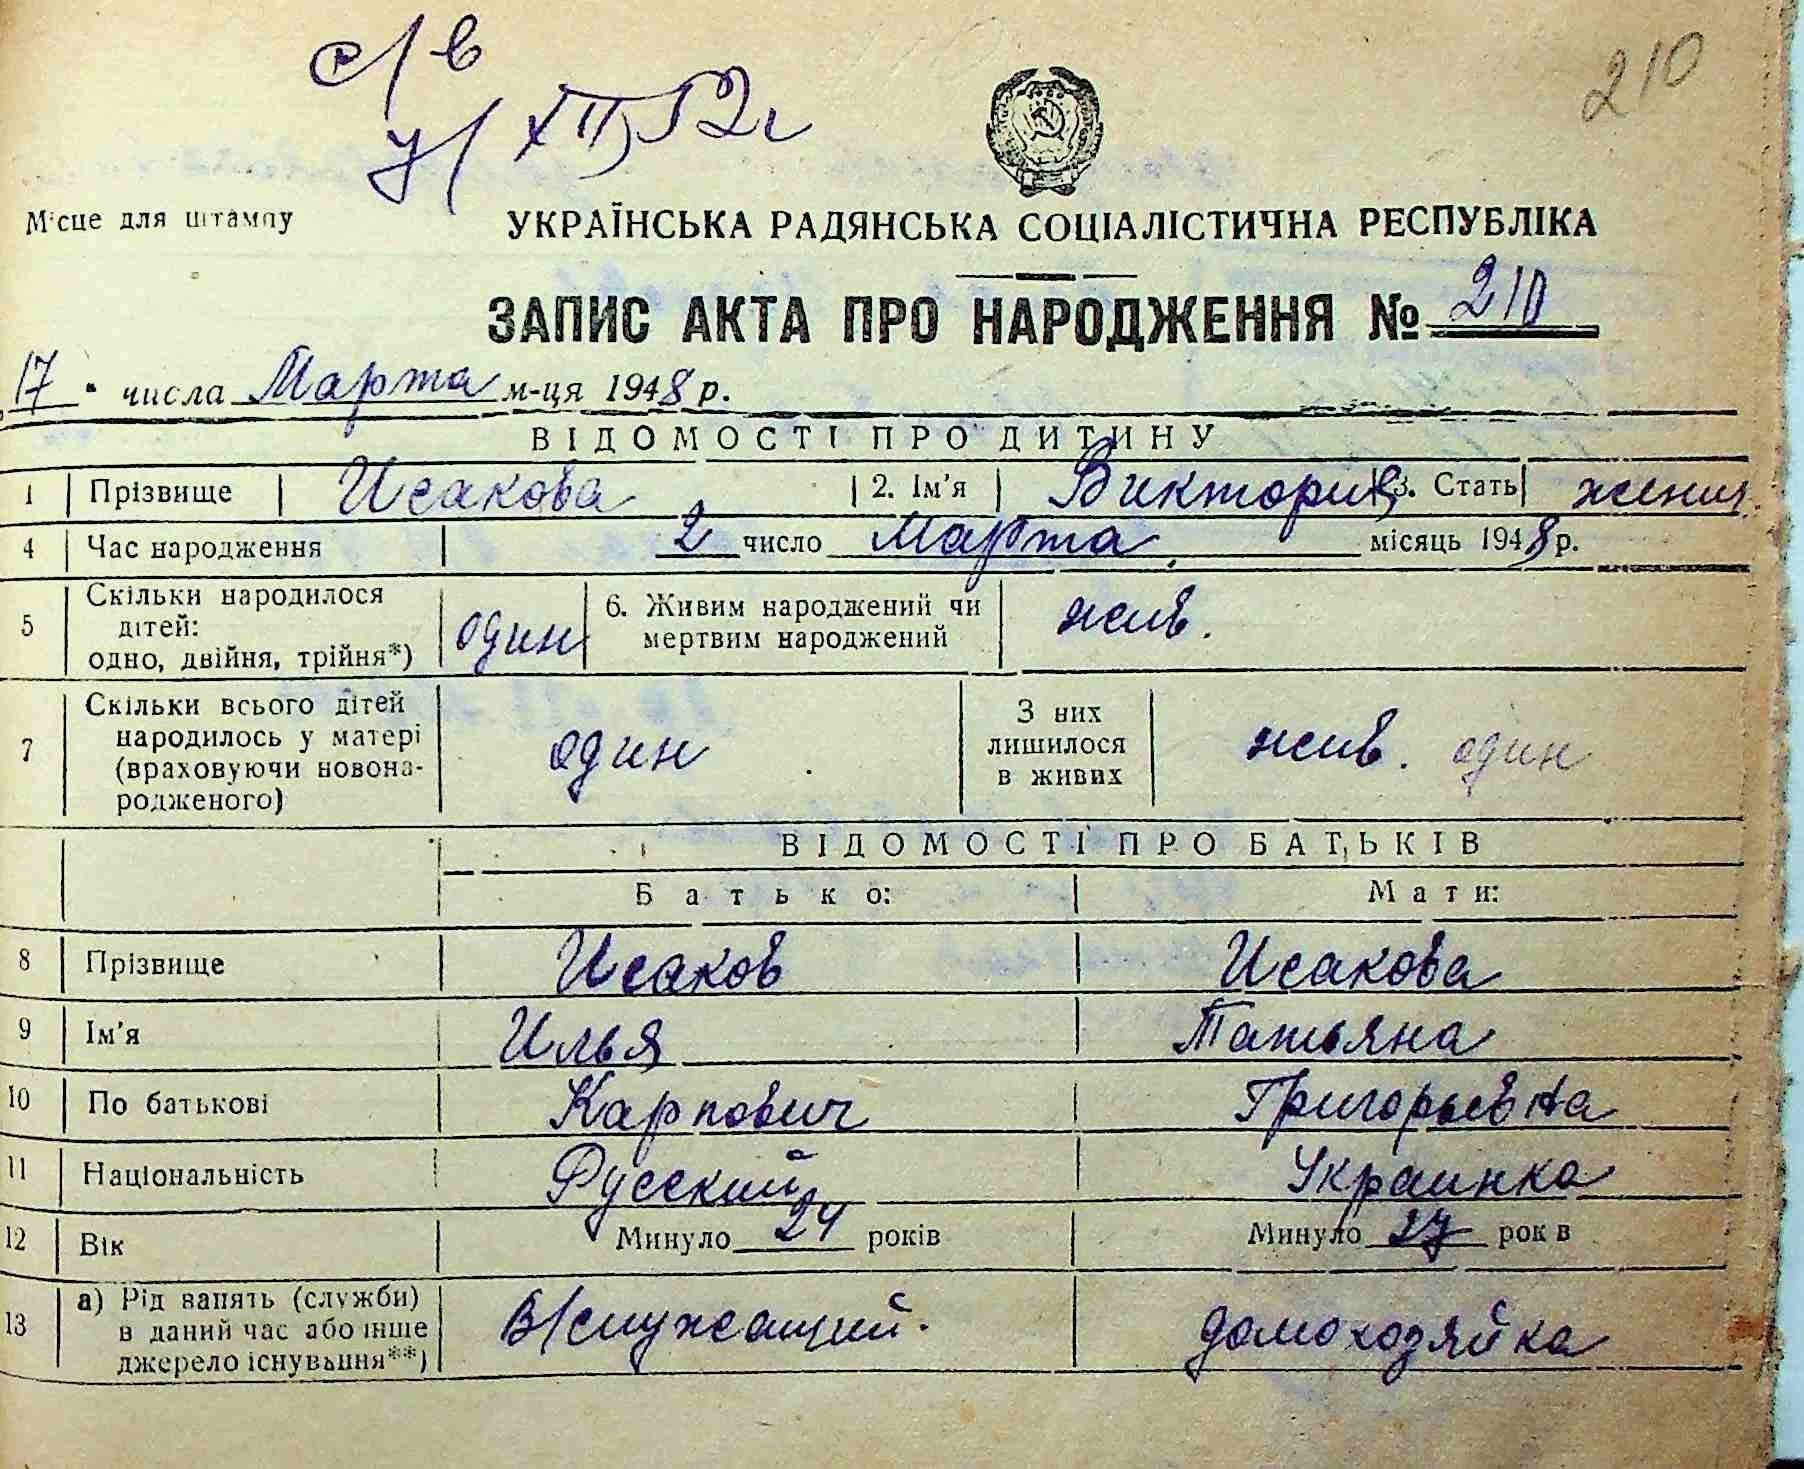 с/в
у/ XII 52г
210
Місце для штампу
УКРАЇНСЬКА РАДЯНСЬКА СОЦІАЛІСТИЧНА РЕСПУБЛІКА
ЗАПИС АКТА ПРО НАРОДЖЕННЯ № 210
17 числа Марта м-ця 1948 р.
ВІДОМОСТІ ПРО ДИТИНУ
1 Прізвище Исакова 2. Ім'я Виктория 3. Стать жения
4 Час народження 2 число Марта місяць 1948 р.
5 Скільки народилося дітей: одно, двійня, трійня*) один 6. Живим народжений чи мертвим народжений жив.
7 Скільки всього дітей народилось у матері (враховуючи новонародженого) один З них лишилося в живих жив. один
ВІДОМОСТІ ПРО БАТЬКІВ
Батько: Мати:
8 Прізвище Исаков Исакова
9 Ім'я Илья Татьяна
10 По батькові Карпович Григорьевна
11 Національність Русский Украинка
12 Вік Минуло 24 років Минуло 27 рок в
13 а) Рід занять (служби) в даний час або інше джерело існування**) В/служащий. домохозяйка